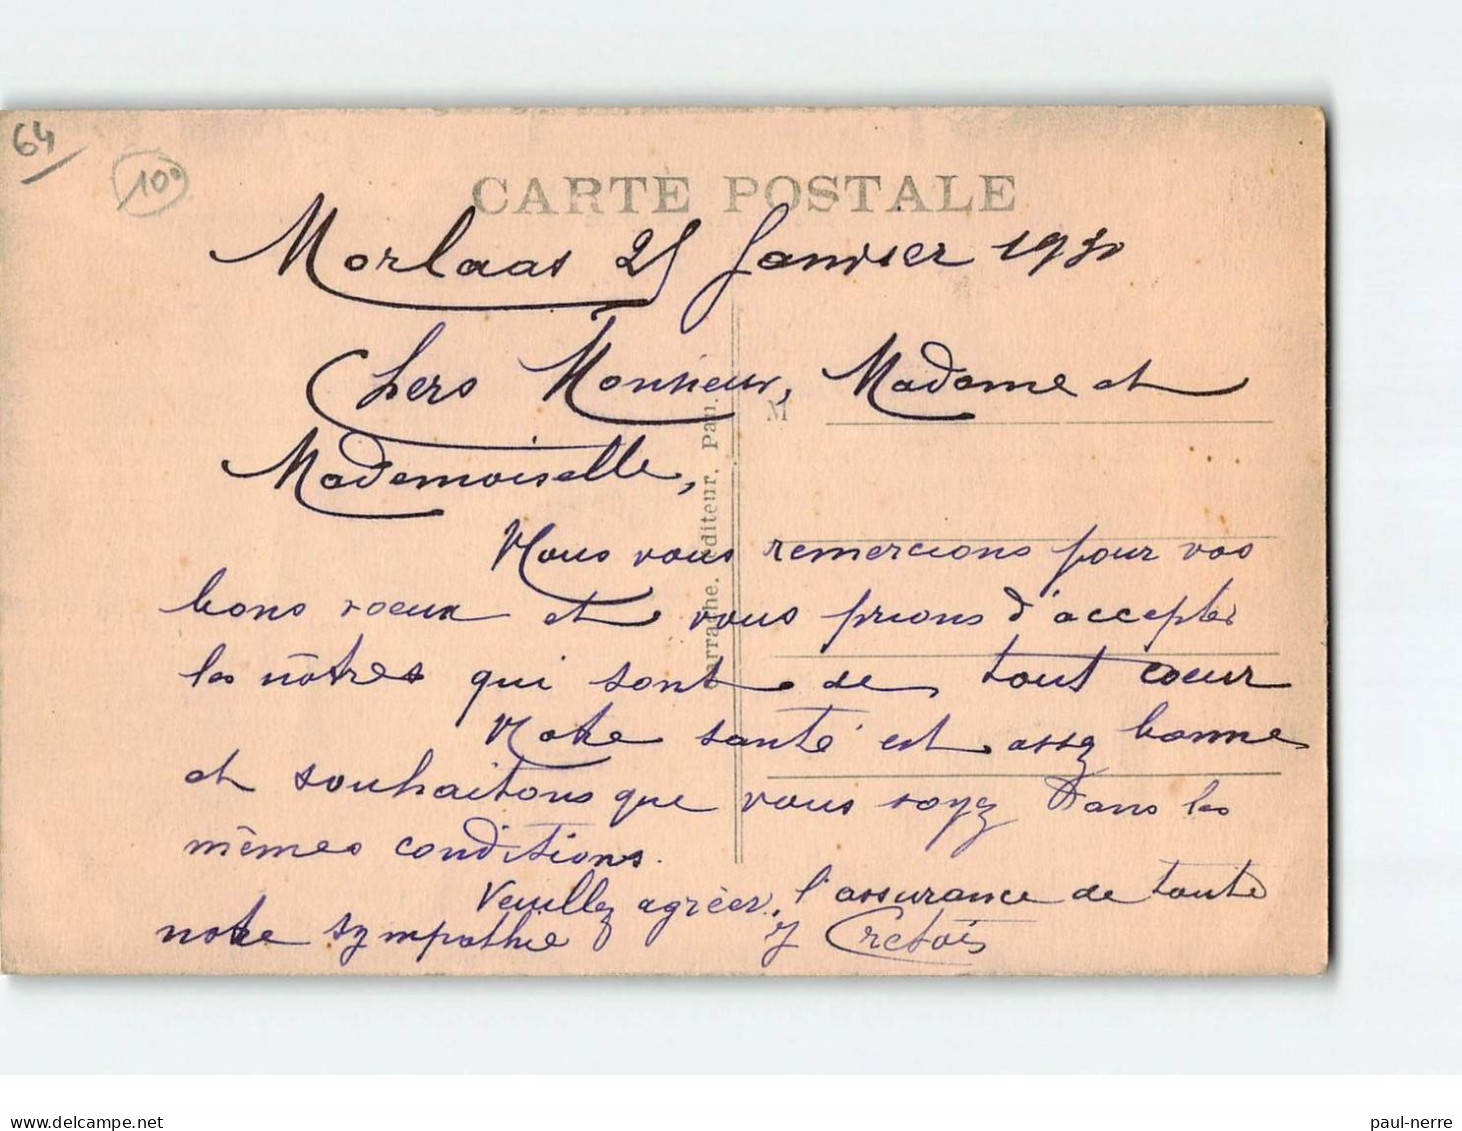 64
100
CARTE POSTALE
Morlaas 25 Janvier 1930
Chers Monsieur, Madame et
M
Mademoiselle,
Carrache, éditeur, Pau.
Nous vous remercions pour vos
bons voeux et vous prions d'accepter
les nôtres qui sont de tout coeur
Notre santé est assez bonne
et souhaitons que vous soyez dans les
mêmes conditions.
Veuillez agréer, l'assurance de toute
notre sympathie Y Cretois
delcampe.net
paul-nerre